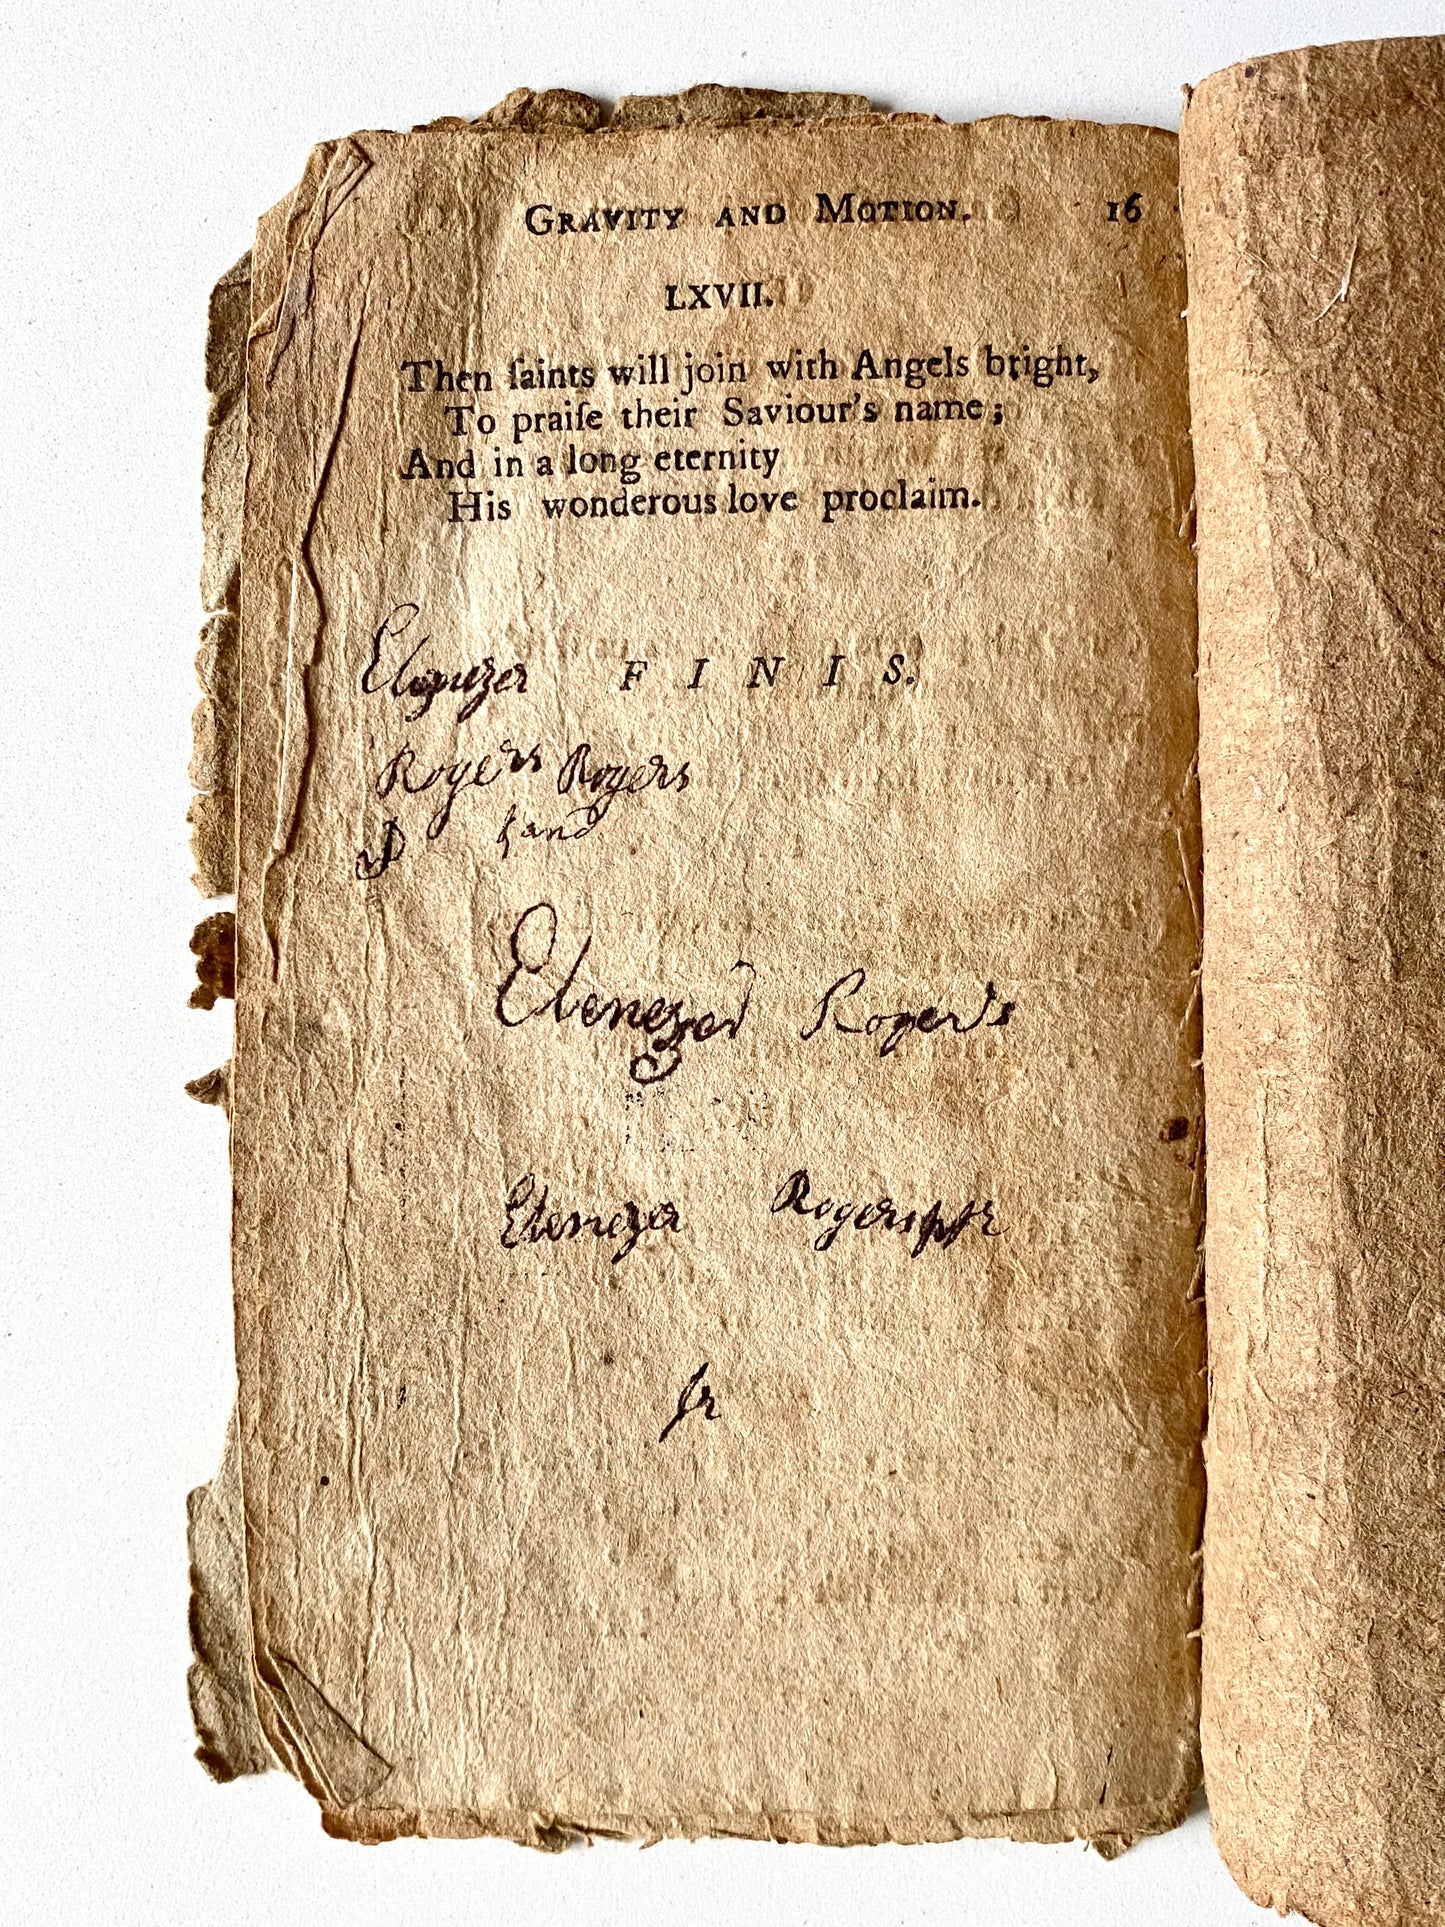 GRAVITY AND MOTION. 16
LXVII.
Then ſaints will join with Angels bright,
To praiſe their Saviour's name;
And in a long eternity
His wonderous love proclaim.
Ebenezer
F I N I S.
Rogers Rogers
hand
Ebenezer Rogers
Ebenezer Rogers
Jr